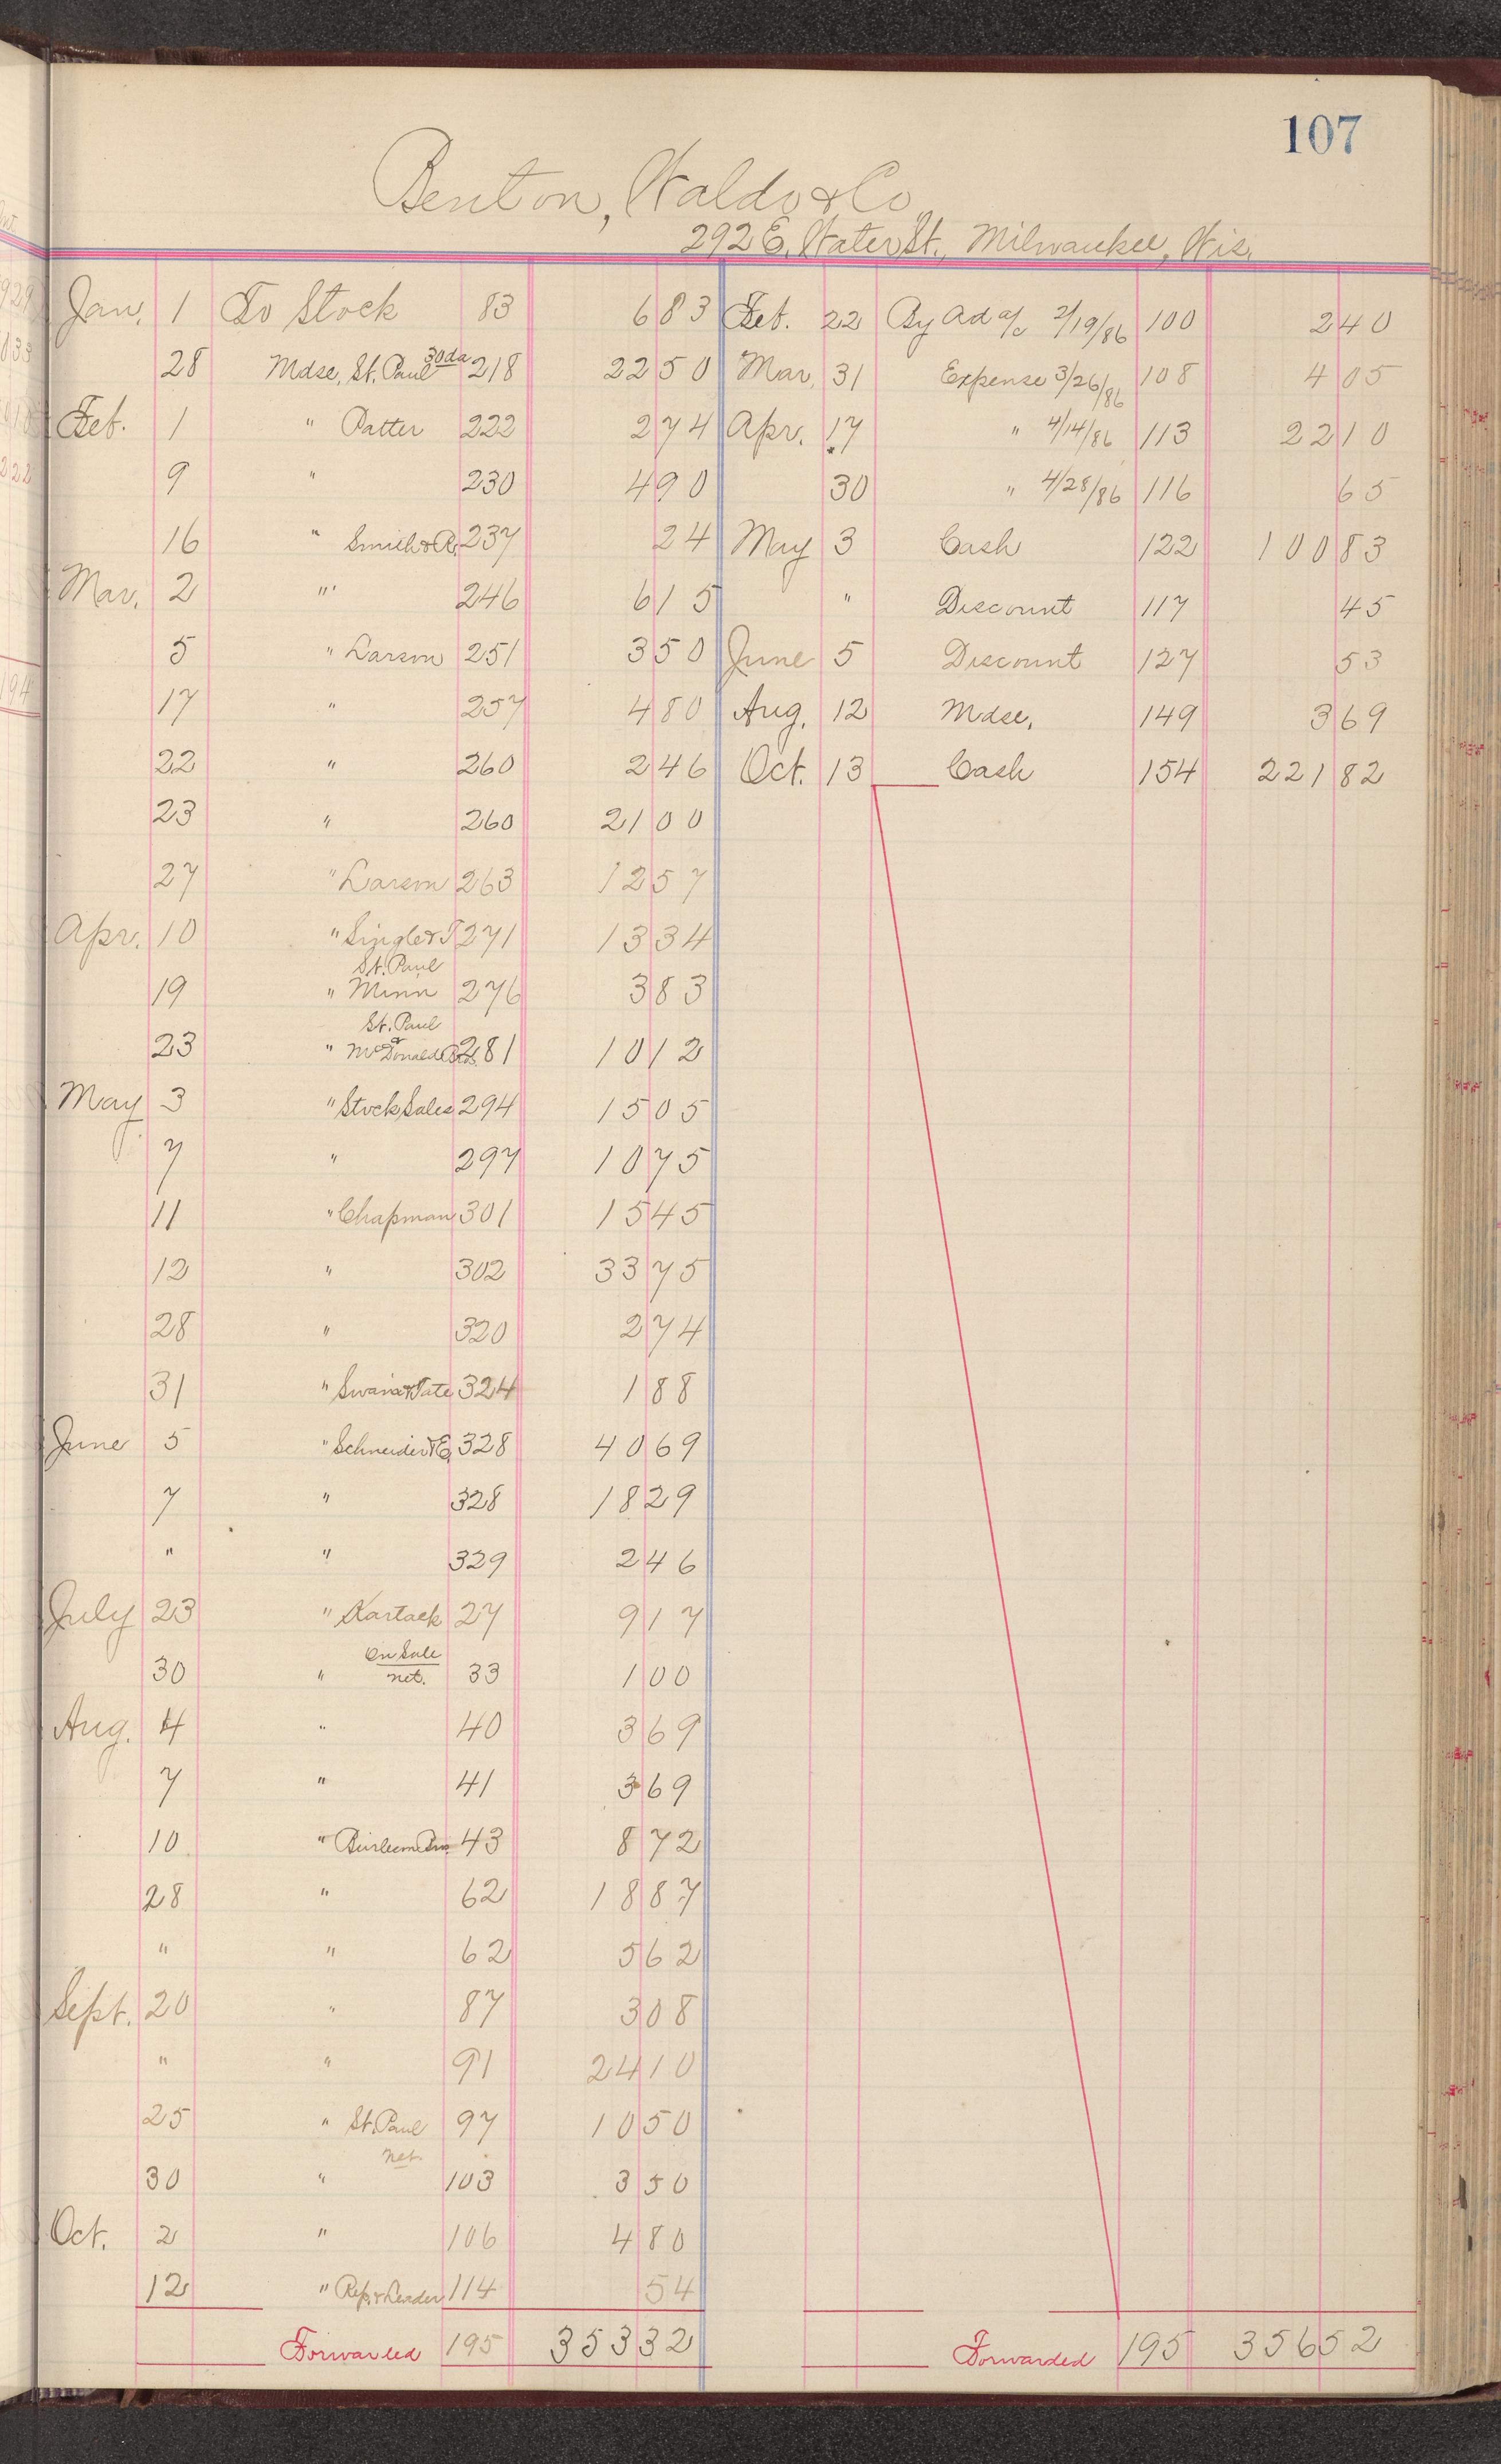 107
Benton, Waldo & Co
292 E. Water St., Milwaukee, Wis.
Jan. 1 To Stock 83 6 83 Feb. 22 By Ad a/c 2/19/86 100 2 40
28 Mdse, St. Paul 30 da 218 22 50 Mar. 31 Expense 3/26/86 108 4 05
Feb. 1 " Patter 222 2 74 Apr. 17 " 4/14/86 113 22 10
9 " 230 4 90 30 " 4/28/86 116 65
16 " Smith & R. 237 24 May 3 Cash 122 100 83
Mar. 2 " 246 6 15 " Discount 117 45
5 " Larson 251 3 50 June 5 Discount 127 53
17 " 257 4 80 Aug. 12 Mdse. 149 3 69
22 " 260 2 46 Oct. 13 Cash 154 221 82
23 " 260 21 00
27 " Larson 263 12 57
Apr. 10 " Single & T 271 13 34
St. Paul
19 " Minn 276 3 83
St. Paul
23 " McDonald Bros. 281 10 12
May 3 " Stock Sales 294 15 05
7 " 297 10 75
11 " Chapman 301 15 45
12 " 302 33 75
28 " 320 2 74
31 " & Tate 324 1 88
June 5 " Schneider & E. 328 40 69
7 " 328 18 29
" " 329 2 46
July 23 " Kartack 27 9 17
On Sale
30 " net. 33 1 00
Aug. 4 " 40 3 69
7 " 41 3 69
10 " 43 8 72
28 " 62 18 87
" " 62 5 62
Sept. 20 " 87 3 08
" " 91 24 10
25 " St. Paul 97 10 50
net.
30 " 103 3 50
Oct. 2 " 106 4 80
12 " Rep. & Leader 114 54
Forwarded 195 353 32 Forwarded 195 356 52